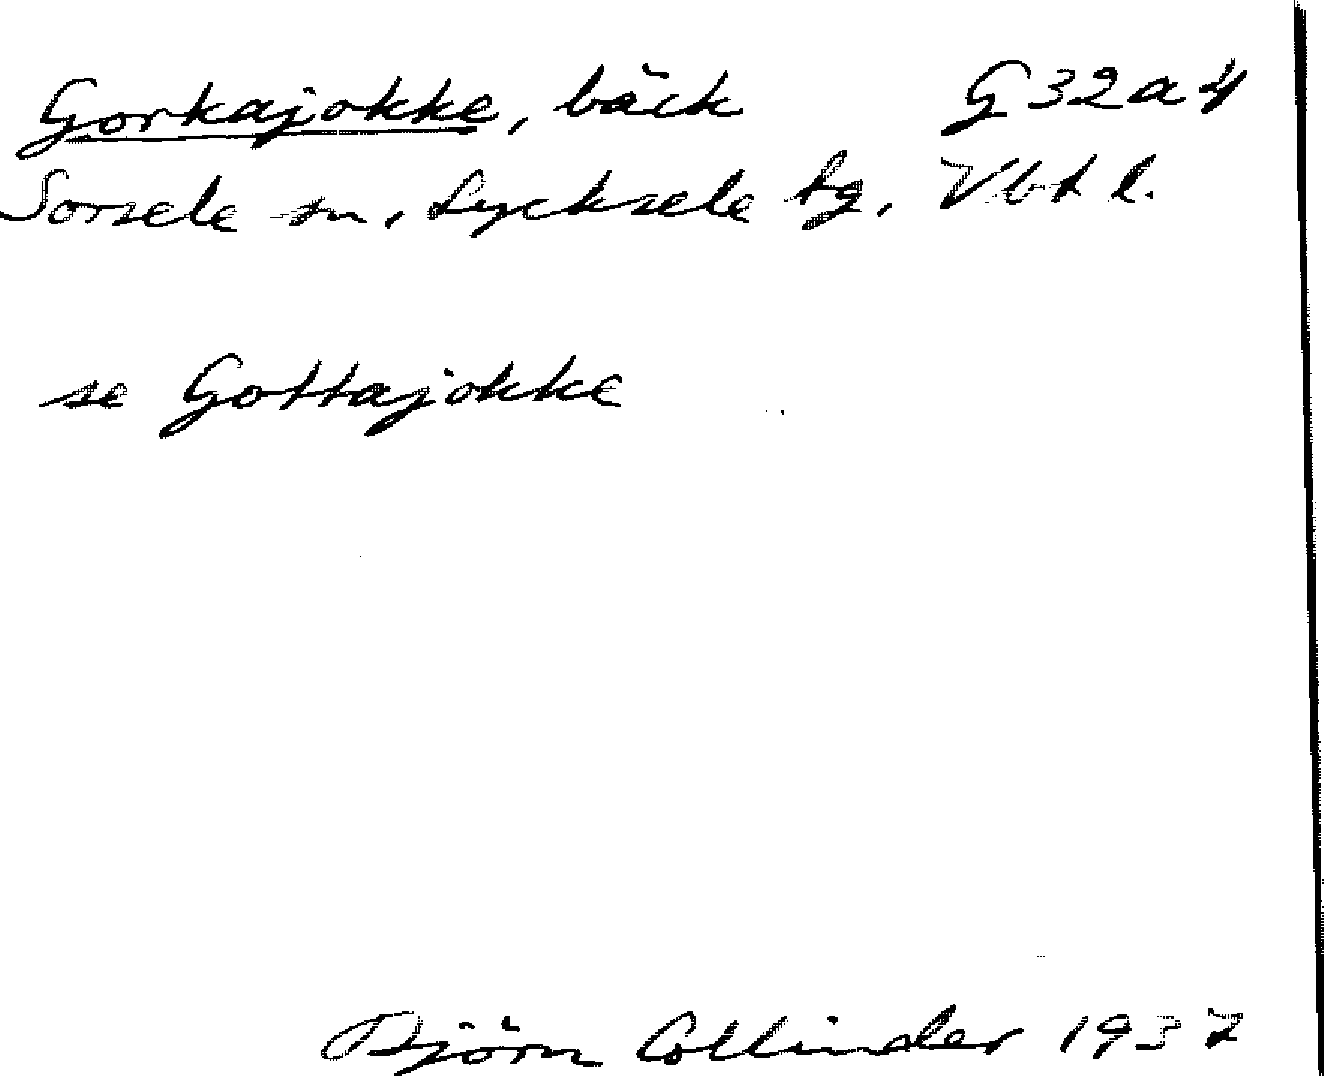 Gorkajokke, bäck G32a4
Sorsele sn, Lycksele lg, Vbt l.
se Gottajokke
Björn Collinder 1937